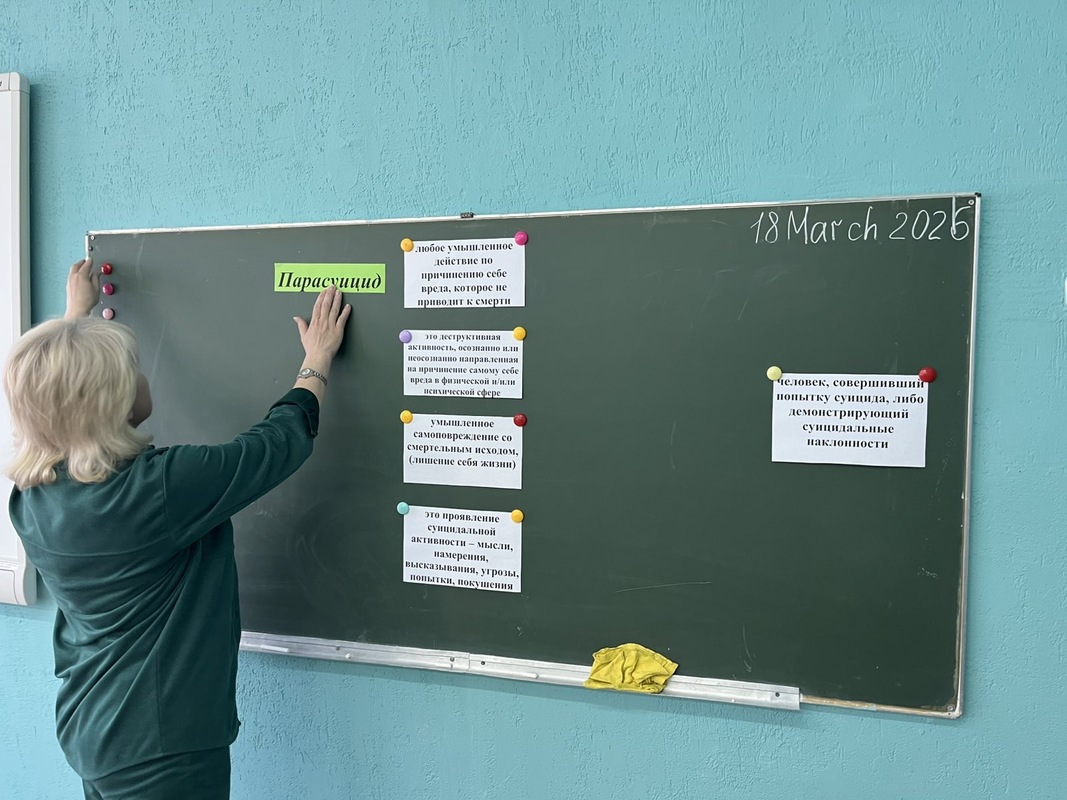 18 March 2026
Парасуицид
любое умышленное
действие по
причинению себе
вреда, которое не
приводит к смерти
это деструктивная
активность, осознанно или
неосознанно направленная
на причинение самому себе
вреда в физической и/или
психической сфере
умышленное
самоповреждение со
смертельным исходом,
(лишение себя жизни)
это проявление
суицидальной
активности – мысли,
намерения,
высказывания, угрозы,
попытки, покушения
человек, совершивший
попытку суицида, либо
демонстрирующий
суицидальные
наклонности